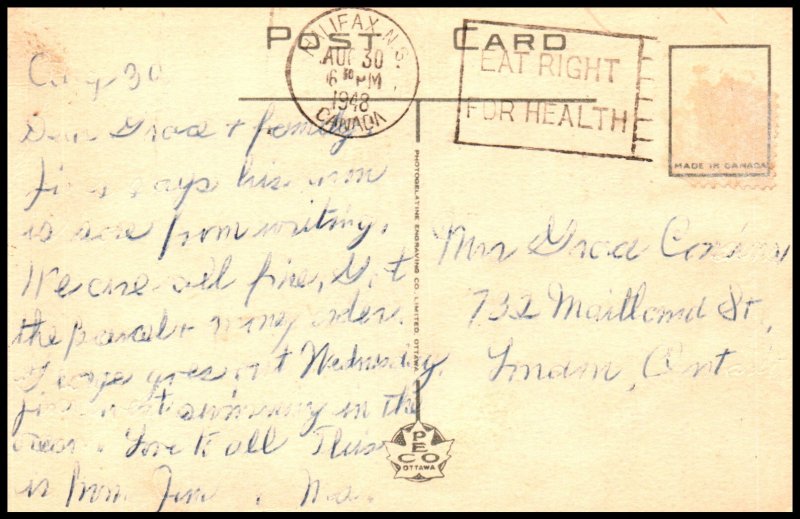 POST CARD
HALIFAX, N.S.
AUG 30
6 30 PM
1948
CANADA
EAT RIGHT
FOR HEALTH
MADE IN CANADA
Aug 30
Dear Grace + family
Jim says his arm
is sore from writing.
We are all fine, Got
the parcel + money order.
George goes out Wednesday.
Jim went swimming in the
ocean. Love to all This
is from Jim. Ma.
PHOTOGELATINE ENGRAVING CO. LIMITED OTTAWA
PECO
OTTAWA
Mrs Grace
732 Maitland St,
London, Ontario